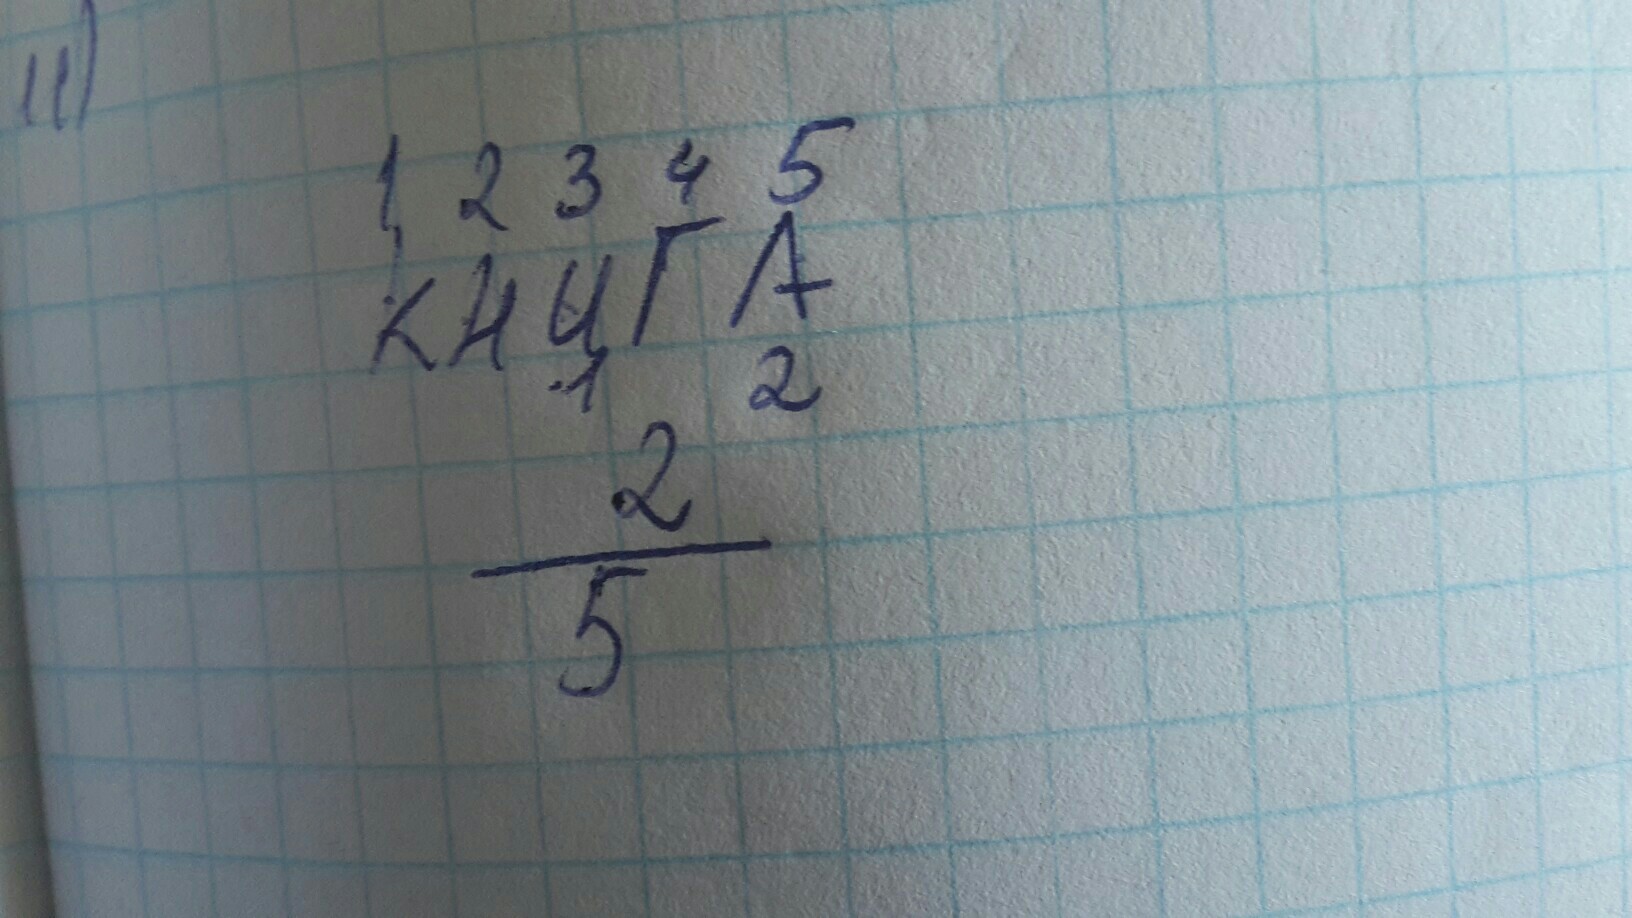 11)
1 2 3 4 5
КНИГА
1 2
2
5